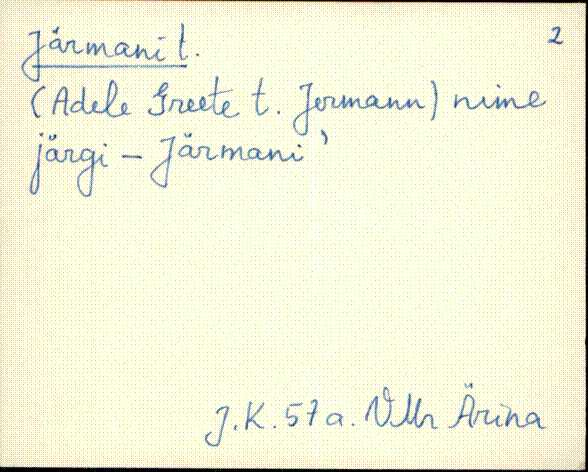 Järmani t.
2
(Adele Greete t. Jermann) nime
järgi – Järmani'
J.K. 57 a. VMr Ärina